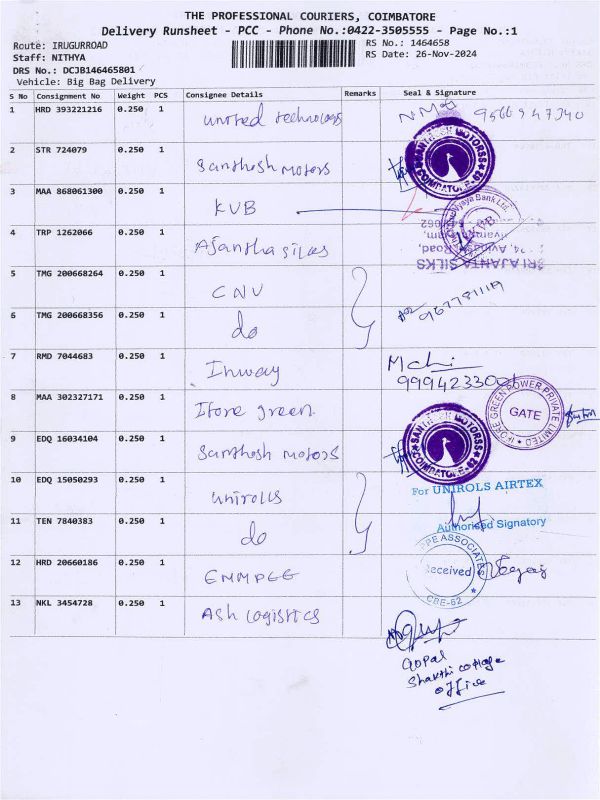 THE PROFESSIONAL COURIERS, COIMBATORE
Delivery Runsheet - PCC - Phone No.:0422-3505555 - Page No.:1
Route: IRUGURROAD
Staff: NITHYA
DRS No.: DCJB146465801
Vehicle: Big Bag Delivery
RS No.: 1464658
RS Date: 26-Nov-2024
S No Consignment No Weight PCS Consignee Details Remarks Seal & Signature
1 HRD 393221216 0.250 1 united technology
2 STR 724079 0.250 1 Santhosh motors
SANTHOSH MOTORSS COIMBATORE-62
3 MAA 868061300 0.250 1 KVB
Vijaya Bank Ltd. KVB
4 TRP 1262066 0.250 1 Ajantha silks
SRI AJANTA SILKS
5 TMG 200668264 0.250 1 CNV
6 TMG 200668356 0.250 1 do
7 RMD 7044683 0.250 1 Inway
8 MAA 302327171 0.250 1 Ifore green
IFORE GREEN POWER PRIVATE LIMITED GATE
9 EDQ 16034104 0.250 1 Santhosh motors
SANTHOSH MOTORSS COIMBATORE-62
10 EDQ 15050293 0.250 1 unirolls
For UNIROLS AIRTEX
Authorised Signatory
11 TEN 7840383 0.250 1 do
12 HRD 20660186 0.250 1 EMMPEE
PPE ASSOCIATES Received CBE-62
13 NKL 3454728 0.250 1 Ash logistics
Gopal
Shakthi cottage
office